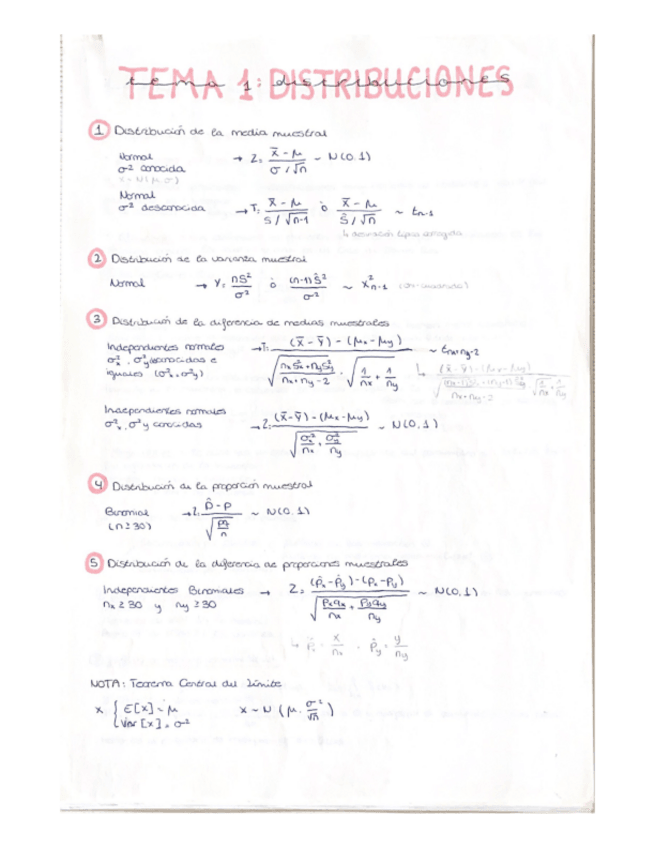 TEMA 1: DISTRIBUCIONES
tema 1: distribuciones
1 Distribución de la media muestral
Normal
σ² conocida → Z = (x̄ - μ) / (σ / √n) ~ N(0,1)
x ~ N(μ, σ)
Normal
σ² desconocida → T = (x̄ - μ) / (S / √n-1) ò (x̄ - μ) / (Ŝ / √n) ~ tn-1
↳ desviación típica corregida
2 Distribución de la varianza muestral
Normal → Y = nS² / σ² ò (n-1)Ŝ² / σ² ~ X²n-1 (chi-cuadrado)
3 Distribución de la diferencia de medias muestrales
Independientes normales → T = ((x̄ - ȳ) - (μx - μy)) / (√((nxS²x + nyS²y) / (nx + ny - 2)) · √(1/nx + 1/ny)) ~ tnx+ny-2
σ²x, σ²y desconocidas e
iguales (σ²x = σ²y)
↳ ((x̄ - ȳ) - (μx - μy)) / (√(((nx-1)Ŝ²x + (ny-1)Ŝ²y) / (nx + ny - 2)) √(1/nx + 1/ny))
Independientes normales
σ²x, σ²y conocidas → Z = ((x̄ - ȳ) - (μx - μy)) / √(σ²x/nx + σ²y/ny) ~ N(0,1)
4 Distribución de la proporción muestral
Binomial → Z = (p̂ - p) / √(pq/n) ~ N(0,1)
(n ≥ 30)
5 Distribución de la diferencia de proporciones muestrales
Independientes Binomiales → Z = ((p̂x - p̂y) - (px - py)) / √(pxqx/nx + pyqy/ny) ~ N(0,1)
nx ≥ 30 y ny ≥ 30
↳ p̂x = x/nx , p̂y = y/ny
NOTA: Teorema Central del Límite
x { E[x] = μ
Var[x] = σ²
x ~ N(μ, σ²/√n)